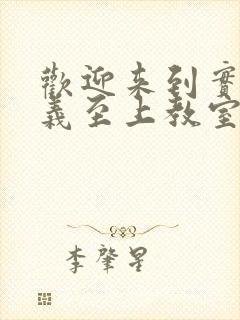 歡迎来到實
義至上教室
李肇星